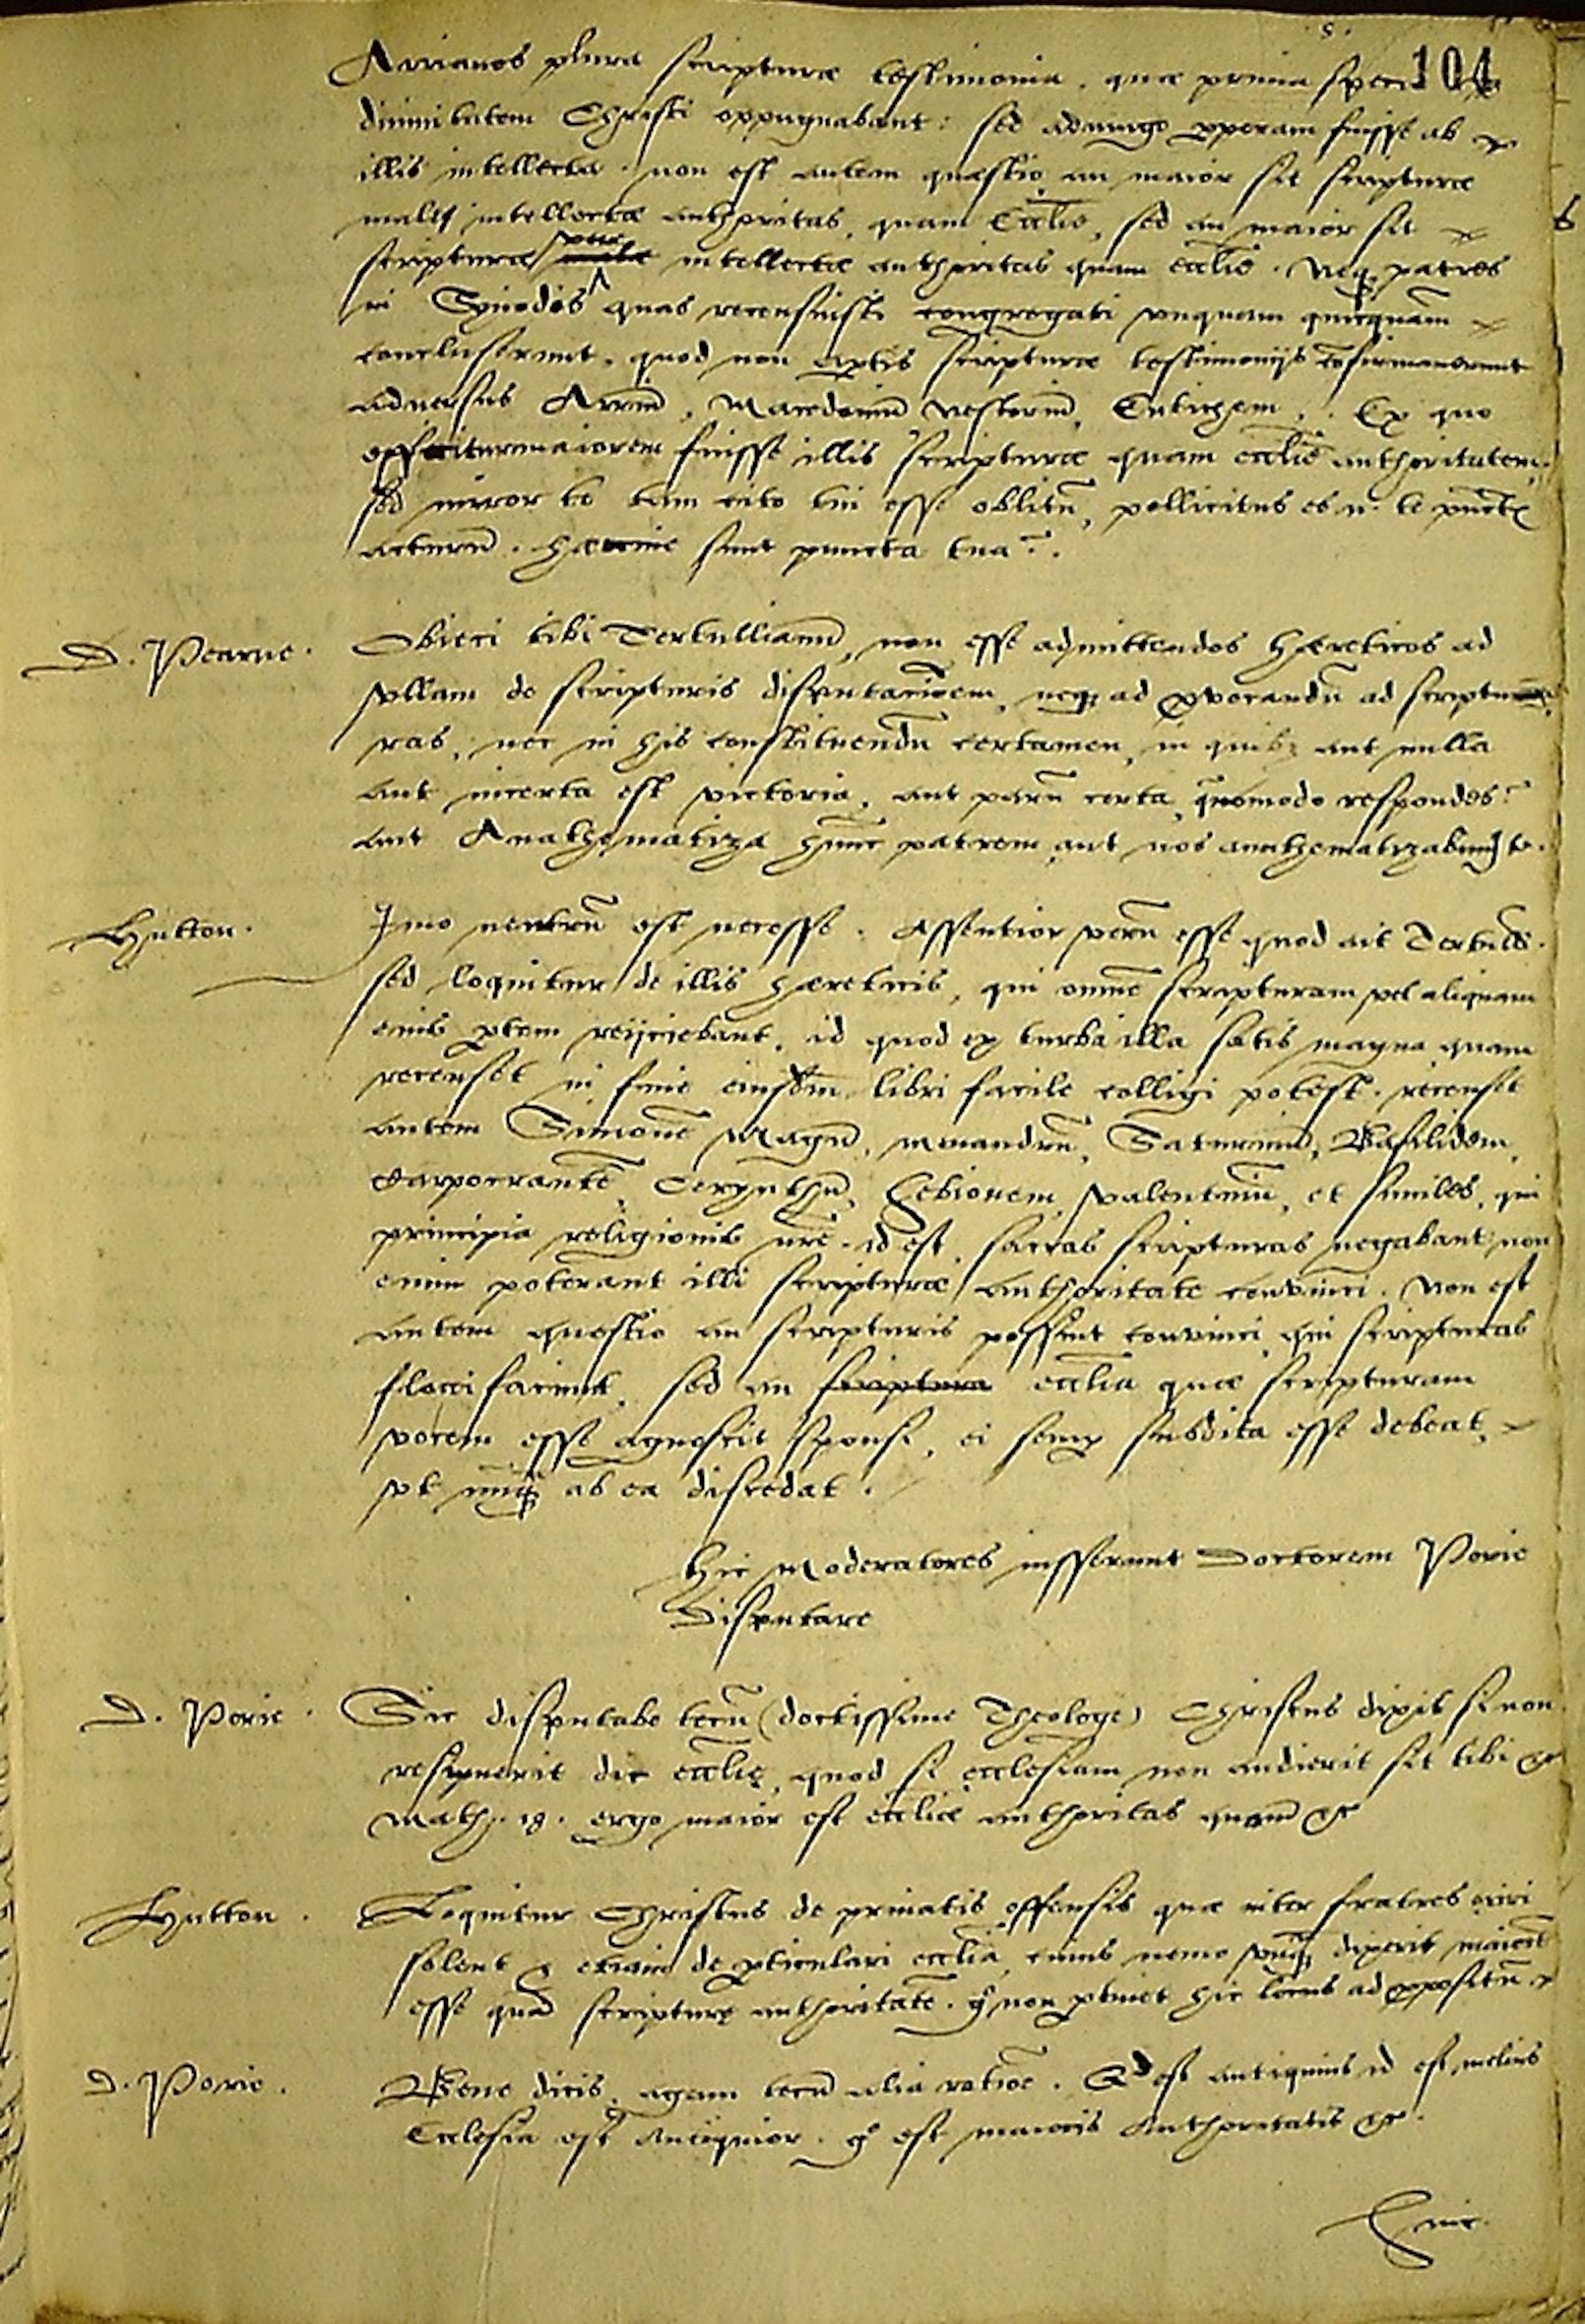 104
Arrianos plura scripturæ testimonia, quæ prima speci
diuinitatem Christi oppugnabant: sed adiungo pperam fuisse ab
illis intellecta. non est autem quæstio an maior sit scripturæ
male intellectæ authoritas, quam Eccliæ, sed an maior sit
scripturæ intellectæ authoritas quam eccliæ. Neq patres
in Synodis quas recensuisti congregati vnquam quicquam
concluserunt, quod non aptis scripturæ testimonijs cōfirmauerunt
aduersus Arriū, Macedoniū Nestoriū, Eutichem. Ex quo
efficitur maiorem fuisse illis scripturæ quam eccliæ authoritatem.
sed miror te tam cito tui esse oblitū, pollicitus es n. te
acturū. hæccine sunt puncta tua?.
D. Pearne. Obieci tibi Tertullianū, non esse admittendos hæreticos ad
vllam de scripturis disputationem, neq ad pvocandū ad scriptu
ras, nec in his constituendū certamen, in quibz aut nulla
aut incerta est victoria, aut parū certa, quomodo respondes?
aut Anathematiza hunc patrem aut nos anathematizabim9 te.
Hutton. Imo neutrū est necesse. Assentior verū esse quod ait Tertull.
sed loquitur de illis hæreticis, qui omnē scripturam vel aliquam
eius ptem reijciebant, id quod ex turba illa satis magna quam
recenset in fine eiusdm libri facile colligi potest. recenset
autem Simonē Magū, Menandrū, Saturninū, Basilidem,
Carpocrantē, Cerynthū, Hebionem, Valentinū, et similes, qui
principia religionis nrē. id est, sacras scripturas negabant: non
enim poterant illi scripturæ authoritate convinci. Non est
autem questio an scripturis possint convinci qui scripturas
flocci faciunt, sed an scriptura ecclia quæ scripturam
vocem esse agnoscit sponsi, ei semp subdita esse debeat,
vt nūq ab ea discedat.
Hic Moderatores iusserunt Doctorem Porie
Disputare
D. Porie. Sic disputabo tecū (doctissime Theologe) Christus dixit si non
resipuerit dic ecclię, quod si ecclesiam non audierit sit tibi &c
Math. 18. ergo maior est eccliæ authoritas quam &c
Hutton. Loquitur Christus de priuatis offensis quæ inter fratres oriri
solent & etiam de pticulari ecclia, cuius nemo vnq dixerit maiorē
esse quā scripturę authoritatē. g non ptinet hic locus ad ppositū
D. Porie. Bene dicis, agam tecū alia ratioe. Qd est antiquius id est melius
Ecclesia est Antiquior. g est maioris Authoritatis &c.